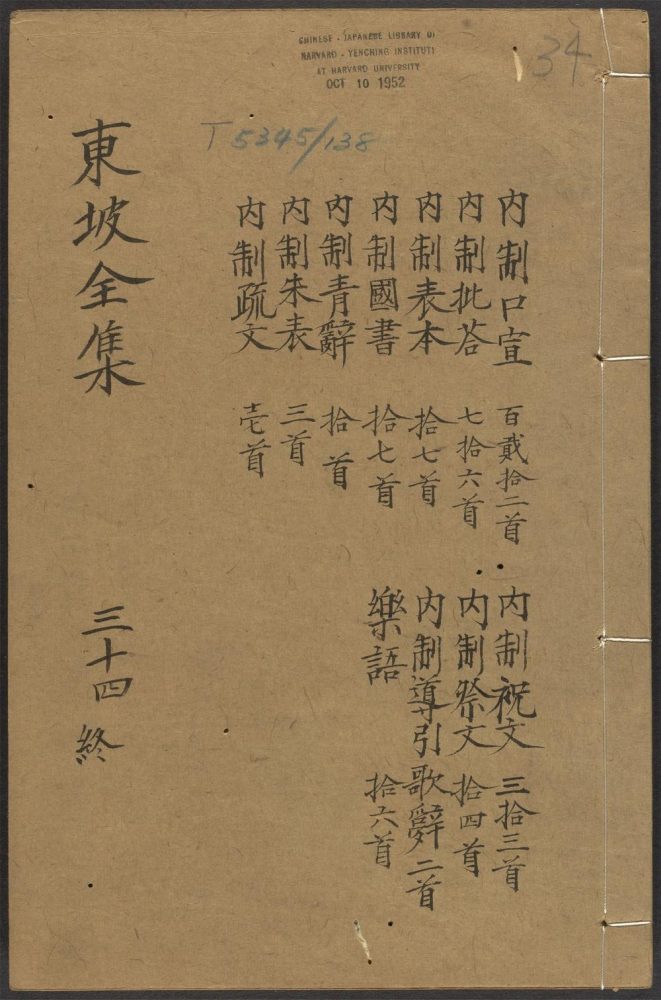 CHINESE - JAPANESE LIBRARY OF
HARVARD - YENCHING INSTITUTE
AT HARVARD UNIVERSITY
OCT 10 1952
34
T 5345/138
内制口宣 百貳拾二首
内制批荅 七拾六首
内制表本 拾七首
内制國書 拾七首
内制青辭 拾首
内制朱表 三首
内制疏文 壱首
内制祝文 三拾三首
内制祭文 拾四首
内制導引歌辭二首
樂語 拾六首
東坡全集
三十四 終